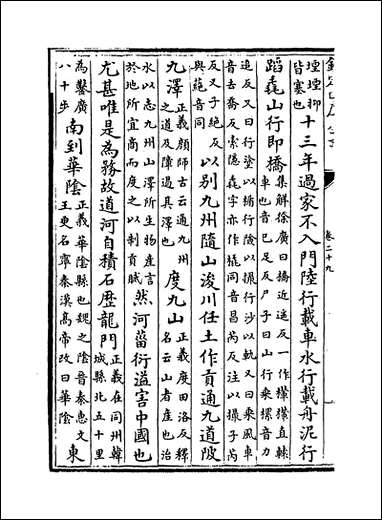 欽定四庫全書
卷二十九
堙堙抑皆塞也十三年過家不入門陸行載車水行載舟泥行
蹈毳山行即橋集解徐廣曰橋近遙反一作檋檋直轅車也音己足反尸子曰山行乘樏音力
追反又曰行塗以楯行險以撮行沙以軌又曰乘風車音去喬反索隱毳字亦作撬同音昌芮反注以撮子芮
反又子絶反與蕝音同以別九州隨山浚川任土作貢通九道陂
九澤正義顔師古云通九州之道及障遏其澤也度九山正義度田洛反釋名云山者產也治
水以志九州山澤所生物產言於地所宜商而度之以制貢賦然河菑衍溢害中國也
尤甚唯是為務故道河自積石歷龍門正義在同州韓城縣北五十里
為鑿廣八十步南到華陰正義華陰縣也魏之陰晉秦惠文王更名寧秦漢高帝改曰華陰東